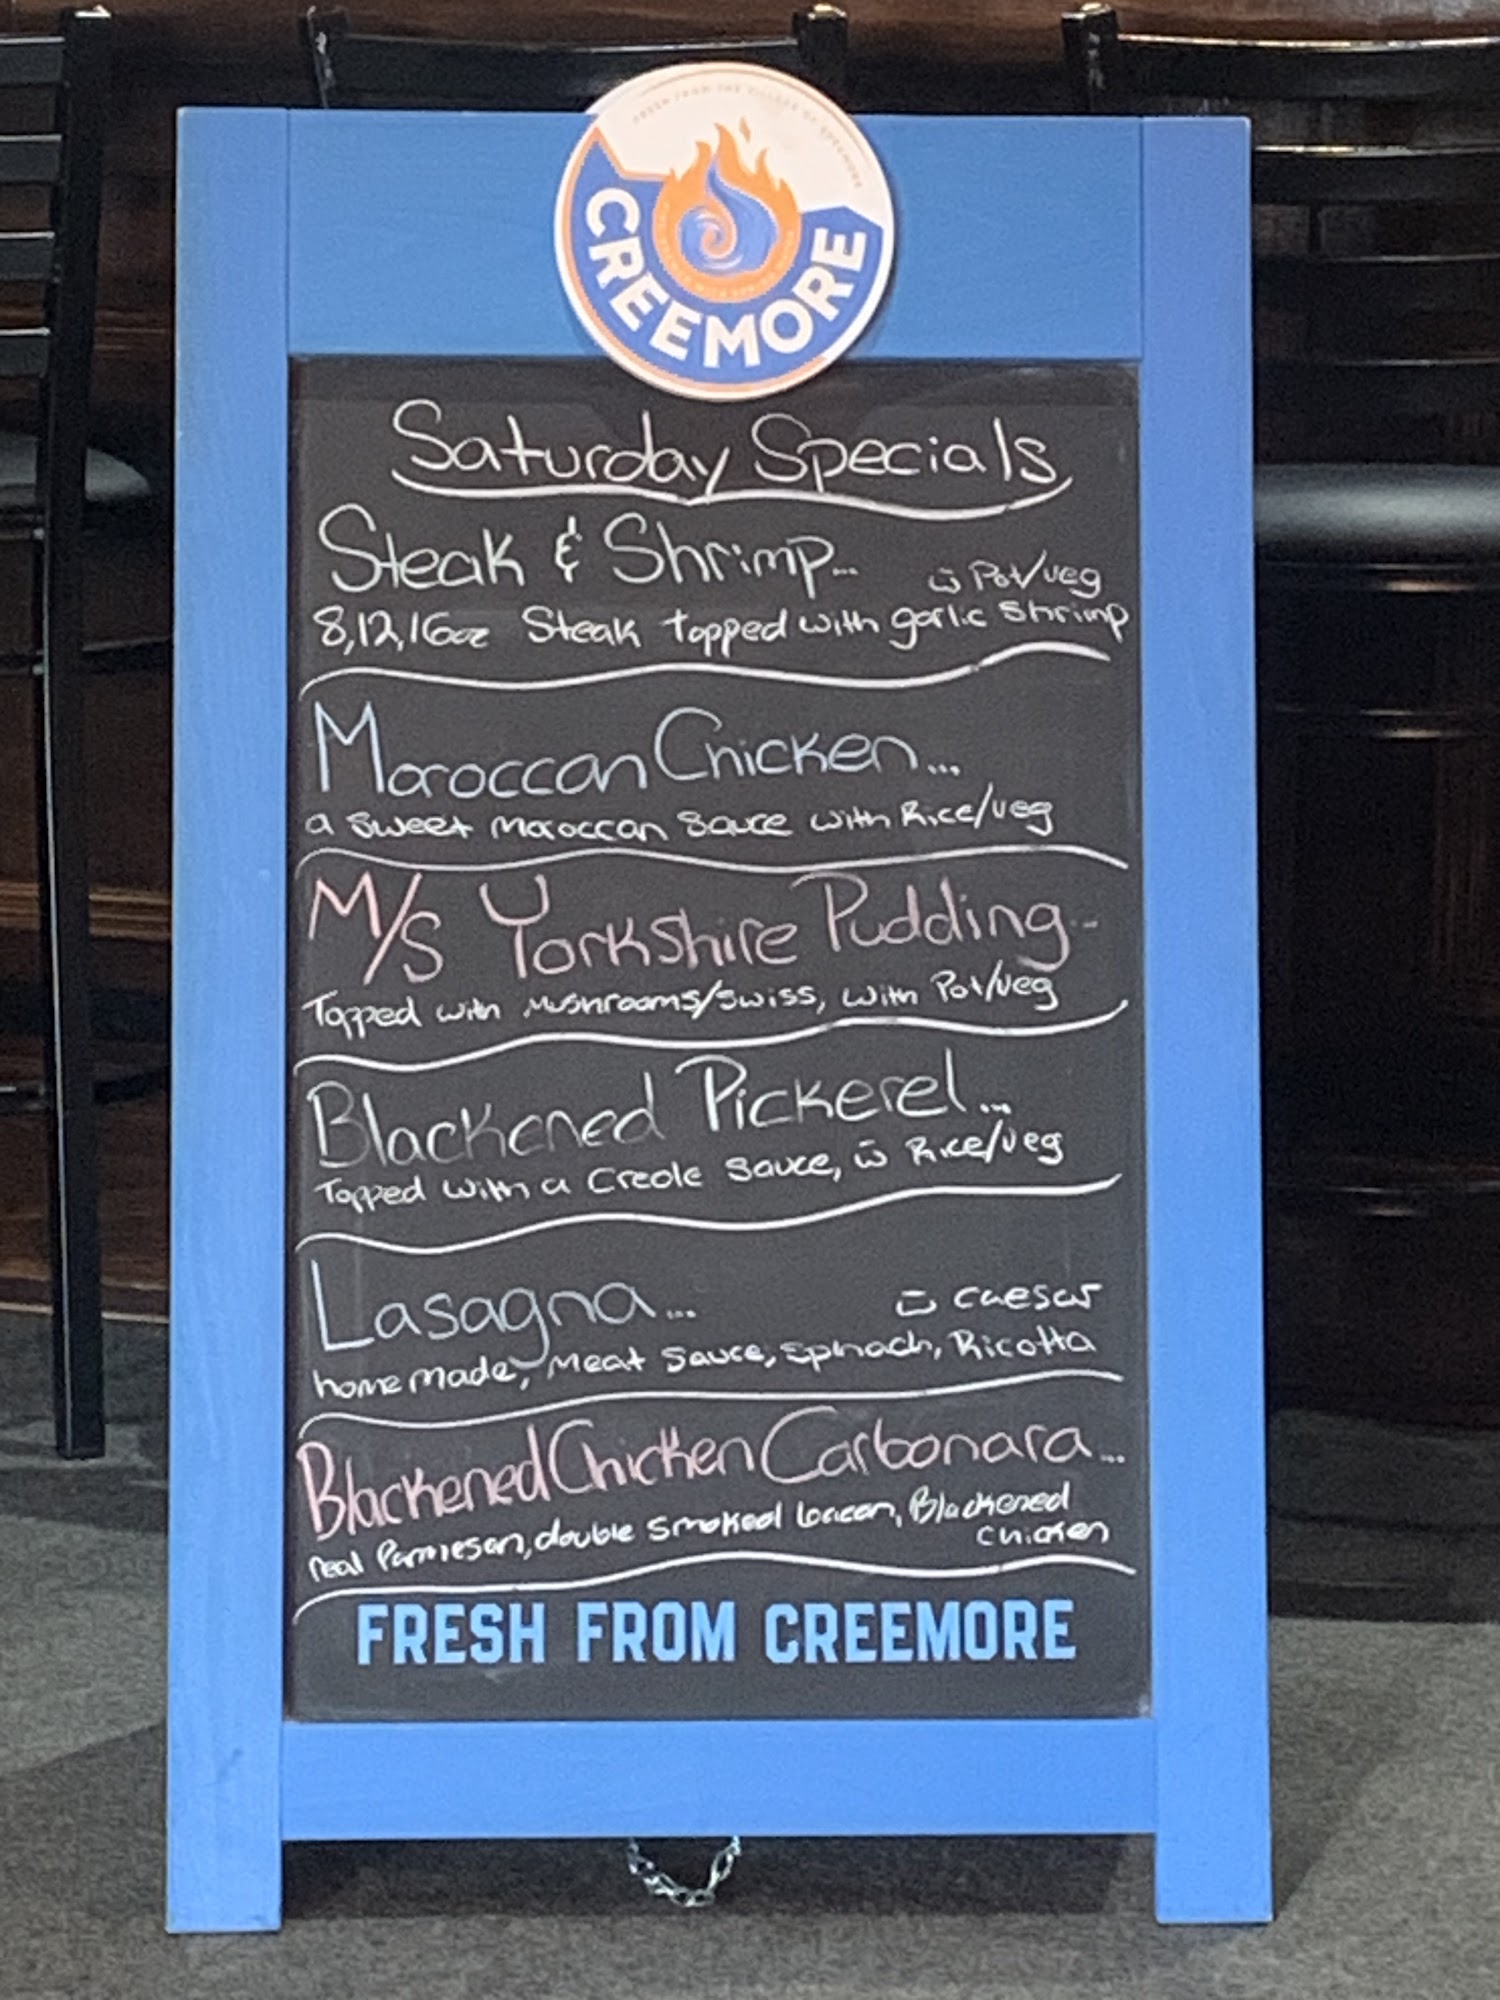 FRESH FROM THE VILLAGE OF CREEMORE
CREEMORE
Saturday Specials
Steak & Shrimp...
w̄ Pot/veg
8,12,16oz Steak topped with garlic Shrimp
Moroccan Chicken...
a sweet Moroccan Sauce with Rice/veg
M/S Yorkshire Pudding...
Topped with Mushrooms/Swiss, with Pot/veg
Blackened Pickerel...
Topped with a Creole Sauce, w̄ Rice/veg
Lasagna...
w̄ caesar
homemade, Meat Sauce, Spinach, Ricotta
Blackened Chicken Carbonara...
real Parmesan, double Smoked bacon, Blackened
chicken
FRESH FROM CREEMORE